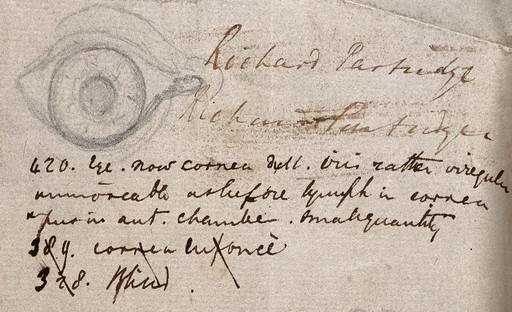 Richard Partridge
Richard Partridge
420. Eye. now cornea dull. iris rather irregular
immoveable as before lymph in cornea
pus in ant. chamber. small quantity
389. cornea
328. Blind